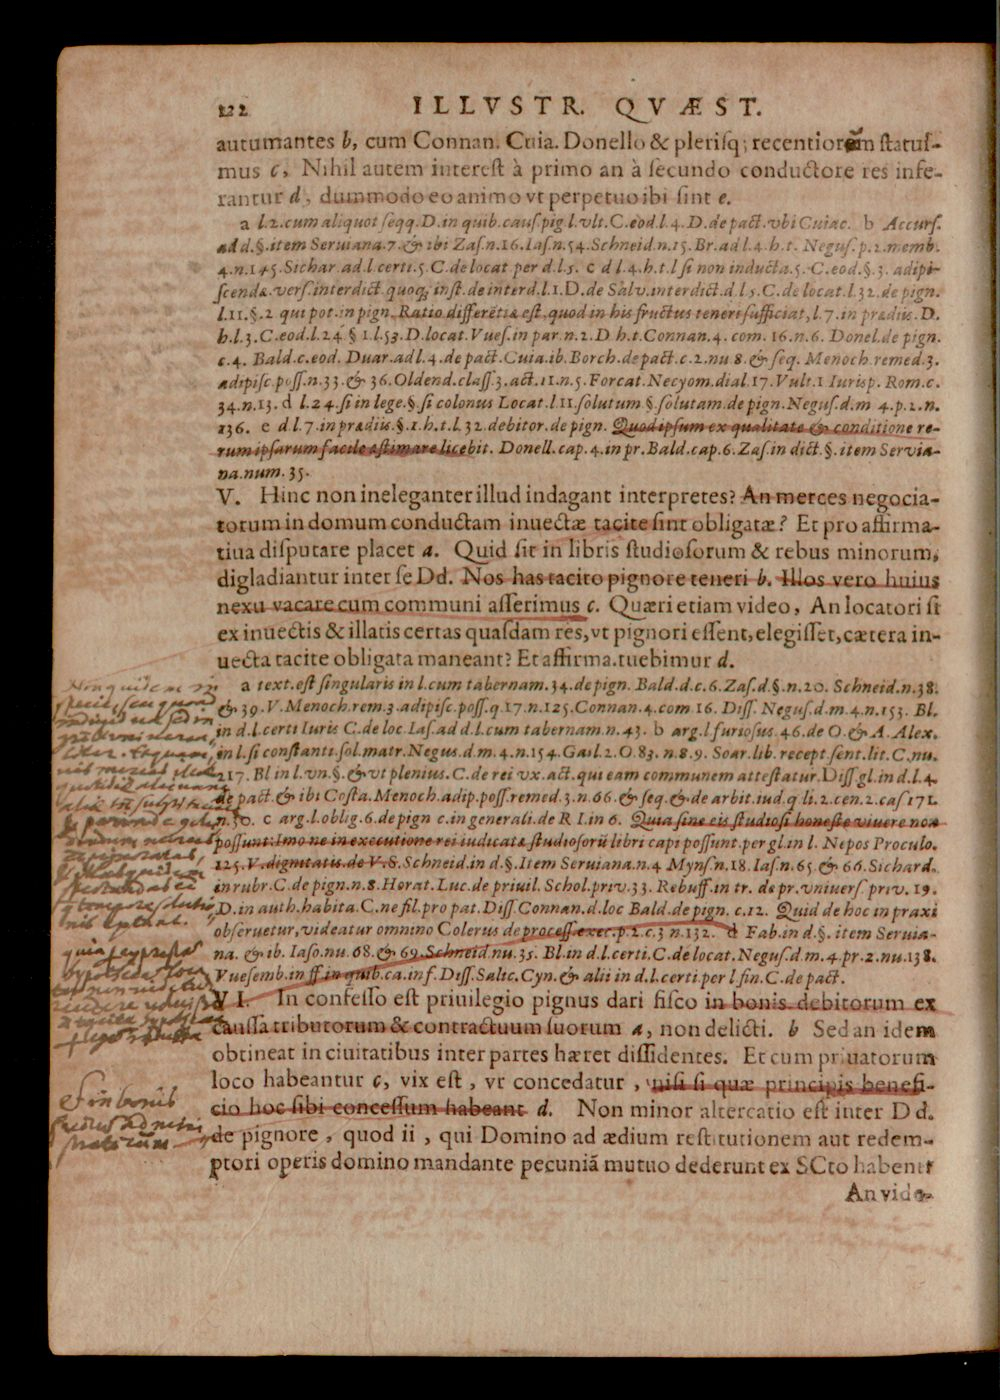 122 ILLVSTR. QVÆST.
autumantes b, cum Connan. Cuia. Donello & pleriſq; recentiorũm ſtatuſ-
mus c, Nihil autem intereſt à primo an à ſecundo conductore res infe-
rantur d, dummodo eo animo vt perpetuo ibi ſint e.
a l.2. cum aliquot ſeqq. D. in quib. cauſ. pig. l. vlt. C. eod. l. 4. D. de pact. vbi Cuiac. b Accurſ.
ad d. §. item Seruiana. 7. & ibi Zaſ. n. 16. Iaſ. n. 54. Schneid. n. 15. Br. ad l. 4. h. t. Neguſ. p. 2. memb.
4. n. 145. Sichar. ad l. certi. 5. C. de locat per d. l. 5. c d l. 4. h. t. l ſi non inducta. 5. C. eod. §. 3. adipi-
ſcendæ. verſ. interdict. quoq; inſt. de interd. l. 1. D. de Salu. interdict. d. l. 5. C. de locat. l. 32. de pign.
l. 11. §. 2 qui pot. in pign. Ratio differẽtiæ eſt, quod in his fructus teneri ſufficiat, l. 7. in prædiis. D.
h. l. 3. C. eod. l. 24. § 1. l. 53. D. locat. Vueſ. in par. n. 2. D h. t. Connan. 4. com. 16. n. 6. Donel. de pign.
c. 4. Bald. c. eod. Duar. ad l. 4. de pact. Cuia. ib. Borch. de pact. c. 2. nu 8. & ſeq. Menoch. remed. 3.
adipiſc. poſſ. n. 33. & 36. Oldend. claſſ. 3. act. 11. n. 5. Forcat. Necyom. dial. 17. Vult. 1 Iurisp. Rom. c.
34. n. 13. d l. 24. ſi in lege. §. ſi colonus Locat. l. 11. ſolutum §. ſolutam. de pign. Neguſ. d. m 4. p. 2. n.
136. e d l. 7. in prædiis. §. 1. h. t. l. 32. debitor. de pign. Quod ipſum ex qualitate & conditione re-
rum ipſarum facile æſtimare licebit. Donell. cap. 4. in pr. Bald. cap. 6. Zaſ. in dict. §. item Seruia-
na. num. 35.
V. Hinc non ineleganter illud indagant interpretes? An merces negocia-
torum in domum conductam inuectæ tacite ſint obligatæ? Et pro affirma-
tiua diſputare placet a. Quid ſit in libris ſtudioſorum & rebus minorum,
digladiantur inter ſe Dd. Nos has tacito pignore teneri b. Illos vero huius
nexu vacare cum communi aſſerimus c. Quæri etiam video, An locatori ſi
ex inuectis & illatis certas quaſdam res, vt pignori eſſent, elegiſſet, cætera in-
uecta tacite obligata maneant? Et affirma. tuebimur d.
a text. eſt ſingularis in l. cum tabernam. 34. de pign. Bald. d. c. 6. Zaſ. d. §. n. 20. Schneid. n. 38.
& 39. V. Menoch. rem. 3. adipiſc. poſſ. q. 17. n. 125. Connan. 4. com 16. Diſſ. Neguſ. d. m. 4. n. 153. Bl.
in d. l. certi Iuris C. de loc. Iaſ. ad d. l. cum tabernam. n. 43. b arg. l. furioſus. 46. de O. & A. Alex.
in l. ſi conſtanti. ſol. matr. Negus. d. m. 4. n. 154. Gail. 2. O. 83. n. 8. 9. Soar. lib. recept. ſent. lit. C. nu.
217. Bl in l. vn. §. & vt plenius. C. de rei vx. act. qui eam communem atteſtatur. Diſſ. gl. in d. l. 4.
de pact. & ibi Coſta. Menoch. adip. poſſ. remed. 3. n. 66. & ſeq. & de arbit. iud. q li. 2. cen. 2. caſ 171.
n. 30. c arg. l. oblig. 6. de pign c. in generali. de R I. in 6. Quia ſine eis ſtudioſi honeſte viuere non
poſſunt: Imo ne in executione rei iudicatæ ſtudioſorũ libri capi poſſunt. per gl. in l. Nepos Proculo.
125. V. dignitatis. de V. S. Schneid. in d. §. Item Seruiana. n. 4 Mynſ. n. 18. Iaſ. n. 65. & 66. Sichard.
in rubr. C. de pign. n. 8. Horat. Luc. de priuil. Schol. priv. 33. Rebuff. in tr. de pr. vniuerſ priv. 19.
D. in auth. habita. C. ne fil. pro pat. Diſſ. Connan. d. loc Bald. de pign. c. 12. Quid de hoc in praxi
obſeruetur, videatur omnino Colerus de proceſſ. exec. p. 2. c. 3 n. 132. d Fab. in d. §. item Seruia-
na. & ib. Iaſo. nu. 68. & 69. Schneid. nu. 35. Bl. in d. l. certi. C. de locat. Neguſ. d. m. 4. pr. 2. nu. 138.
Vueſemb. in ff in quib. ca. inf. Diſſ. Salic. Cyn. & alii in d. l. certi. per l fin. C. de pact.
VI. In confeſſo eſt priuilegio pignus dari fiſco in bonis debitorum ex
cauſſa tributorum & contractuum ſuorum a, non delicti. b Sed an idem
obtineat in ciuitatibus inter partes hæret diſſidentes. Et cum priuatorum
loco habeantur c, vix eſt, vt concedatur, niſi ſi quæ principis benefi-
cio hoc ſibi conceſſum habeant d. Non minor altercatio eſt inter D d.
de pignore, quod ii, qui Domino ad ædium reſtitutionem aut redem-
ptori operis domino mandante pecuniã mutuo dederunt ex SCto habent
An vide-
Non quidem in
quia expreſſa
ſin bonis